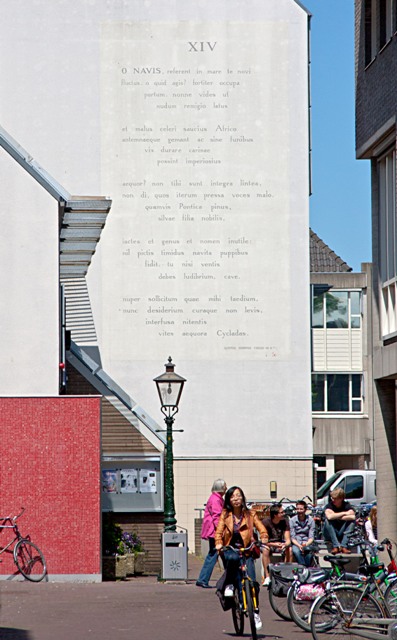 XIV
O NAVIS, referent in mare te novi
fluctus. o quid agis? fortiter occupa
portum. nonne vides ut
nudum remigio latus
et malus celeri saucius Africo
antemnaeque gemant ac sine funibus
vix durare carinae
possint imperiosius
aequor? non tibi sunt integra lintea,
non di, quos iterum pressa voces malo.
quamvis Pontica pinus,
silvae filia nobilis,
iactes et genus et nomen inutile:
nil pictis timidus navita puppibus
fidit. tu nisi ventis
debes ludibrium, cave.
nuper sollicitum quae mihi taedium,
nunc desiderium curaque non levis,
interfusa nitentis
vites aequora Cycladas.